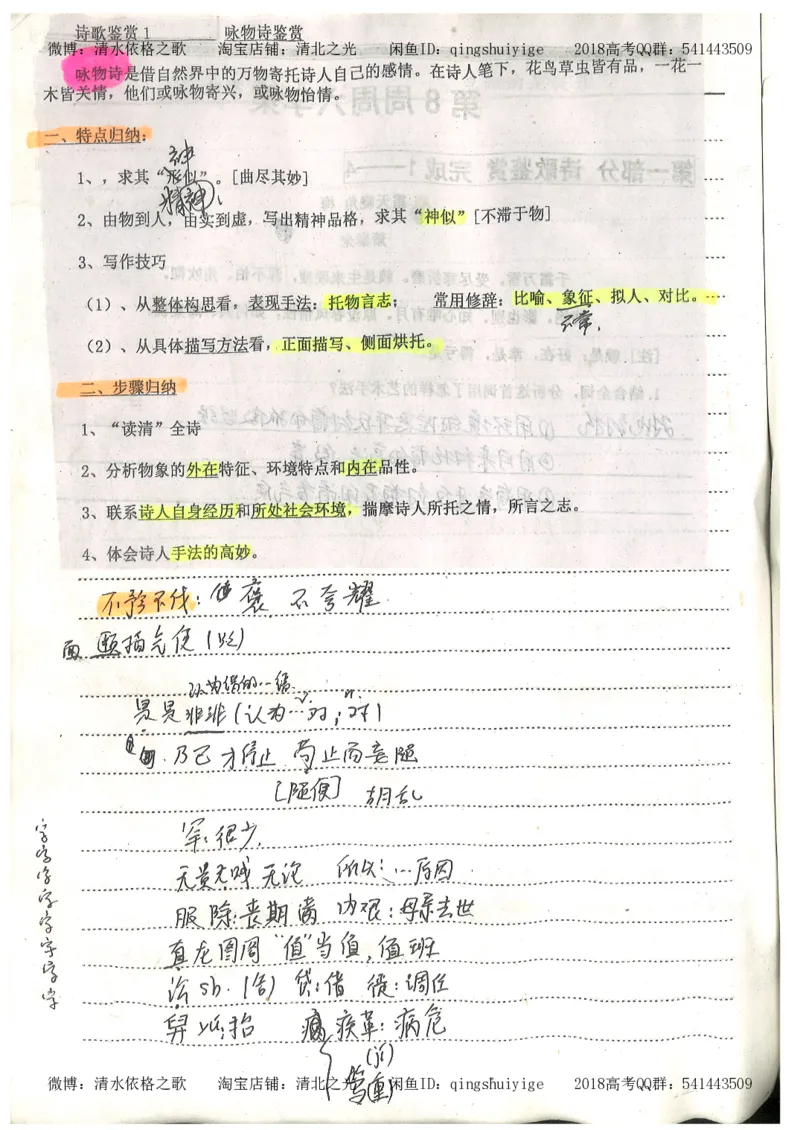 诗歌鉴赏1 咏物诗鉴赏
微博：清水依格之歌 淘宝店铺：清北之光 闲鱼ID：qingshuiyige 2018高考QQ群：541443509
咏物诗是借自然界中的万物寄托诗人自己的感情。在诗人笔下，花鸟草虫皆有品，一花一
木皆关情，他们或咏物寄兴，或咏物怡情。
一、特点归纳：
神
1、，求其“形似”。[曲尽其妙]
精神
2、由物到人，由实到虚，写出精神品格，求其“神似”[不滞于物]
3、写作技巧
（1）、从整体构思看，表现手法：托物言志； 常用修辞：比喻、象征、拟人、对比。
（2）、从具体描写方法看，正面描写、侧面烘托。
二、步骤归纳
1、“读清”全诗
2、分析物象的外在特征、环境特点和内在品性。
3、联系诗人自身经历和所处社会环境，揣摩诗人所托之情，所言之志。
4、体会诗人手法的高妙。
不矜不伐：褒 不夸耀
颐指气使（贬）
认为错的…错
是是非非（认为…对；对）
乃已 才停止 苟止而妄随
[随便] 胡乱
罕：很少
无贵无贱 无论 所以：…原因
服除：丧期满 内艰：母亲去世
直龙图阁 “值”当值，值班
贷：借 徙：调任
疾革：病危
(jí)
笃重
字字字字字字字字
微博：清水依格之歌 淘宝店铺：清北之光 闲鱼ID：qingshuiyige 2018高考QQ群：541443509